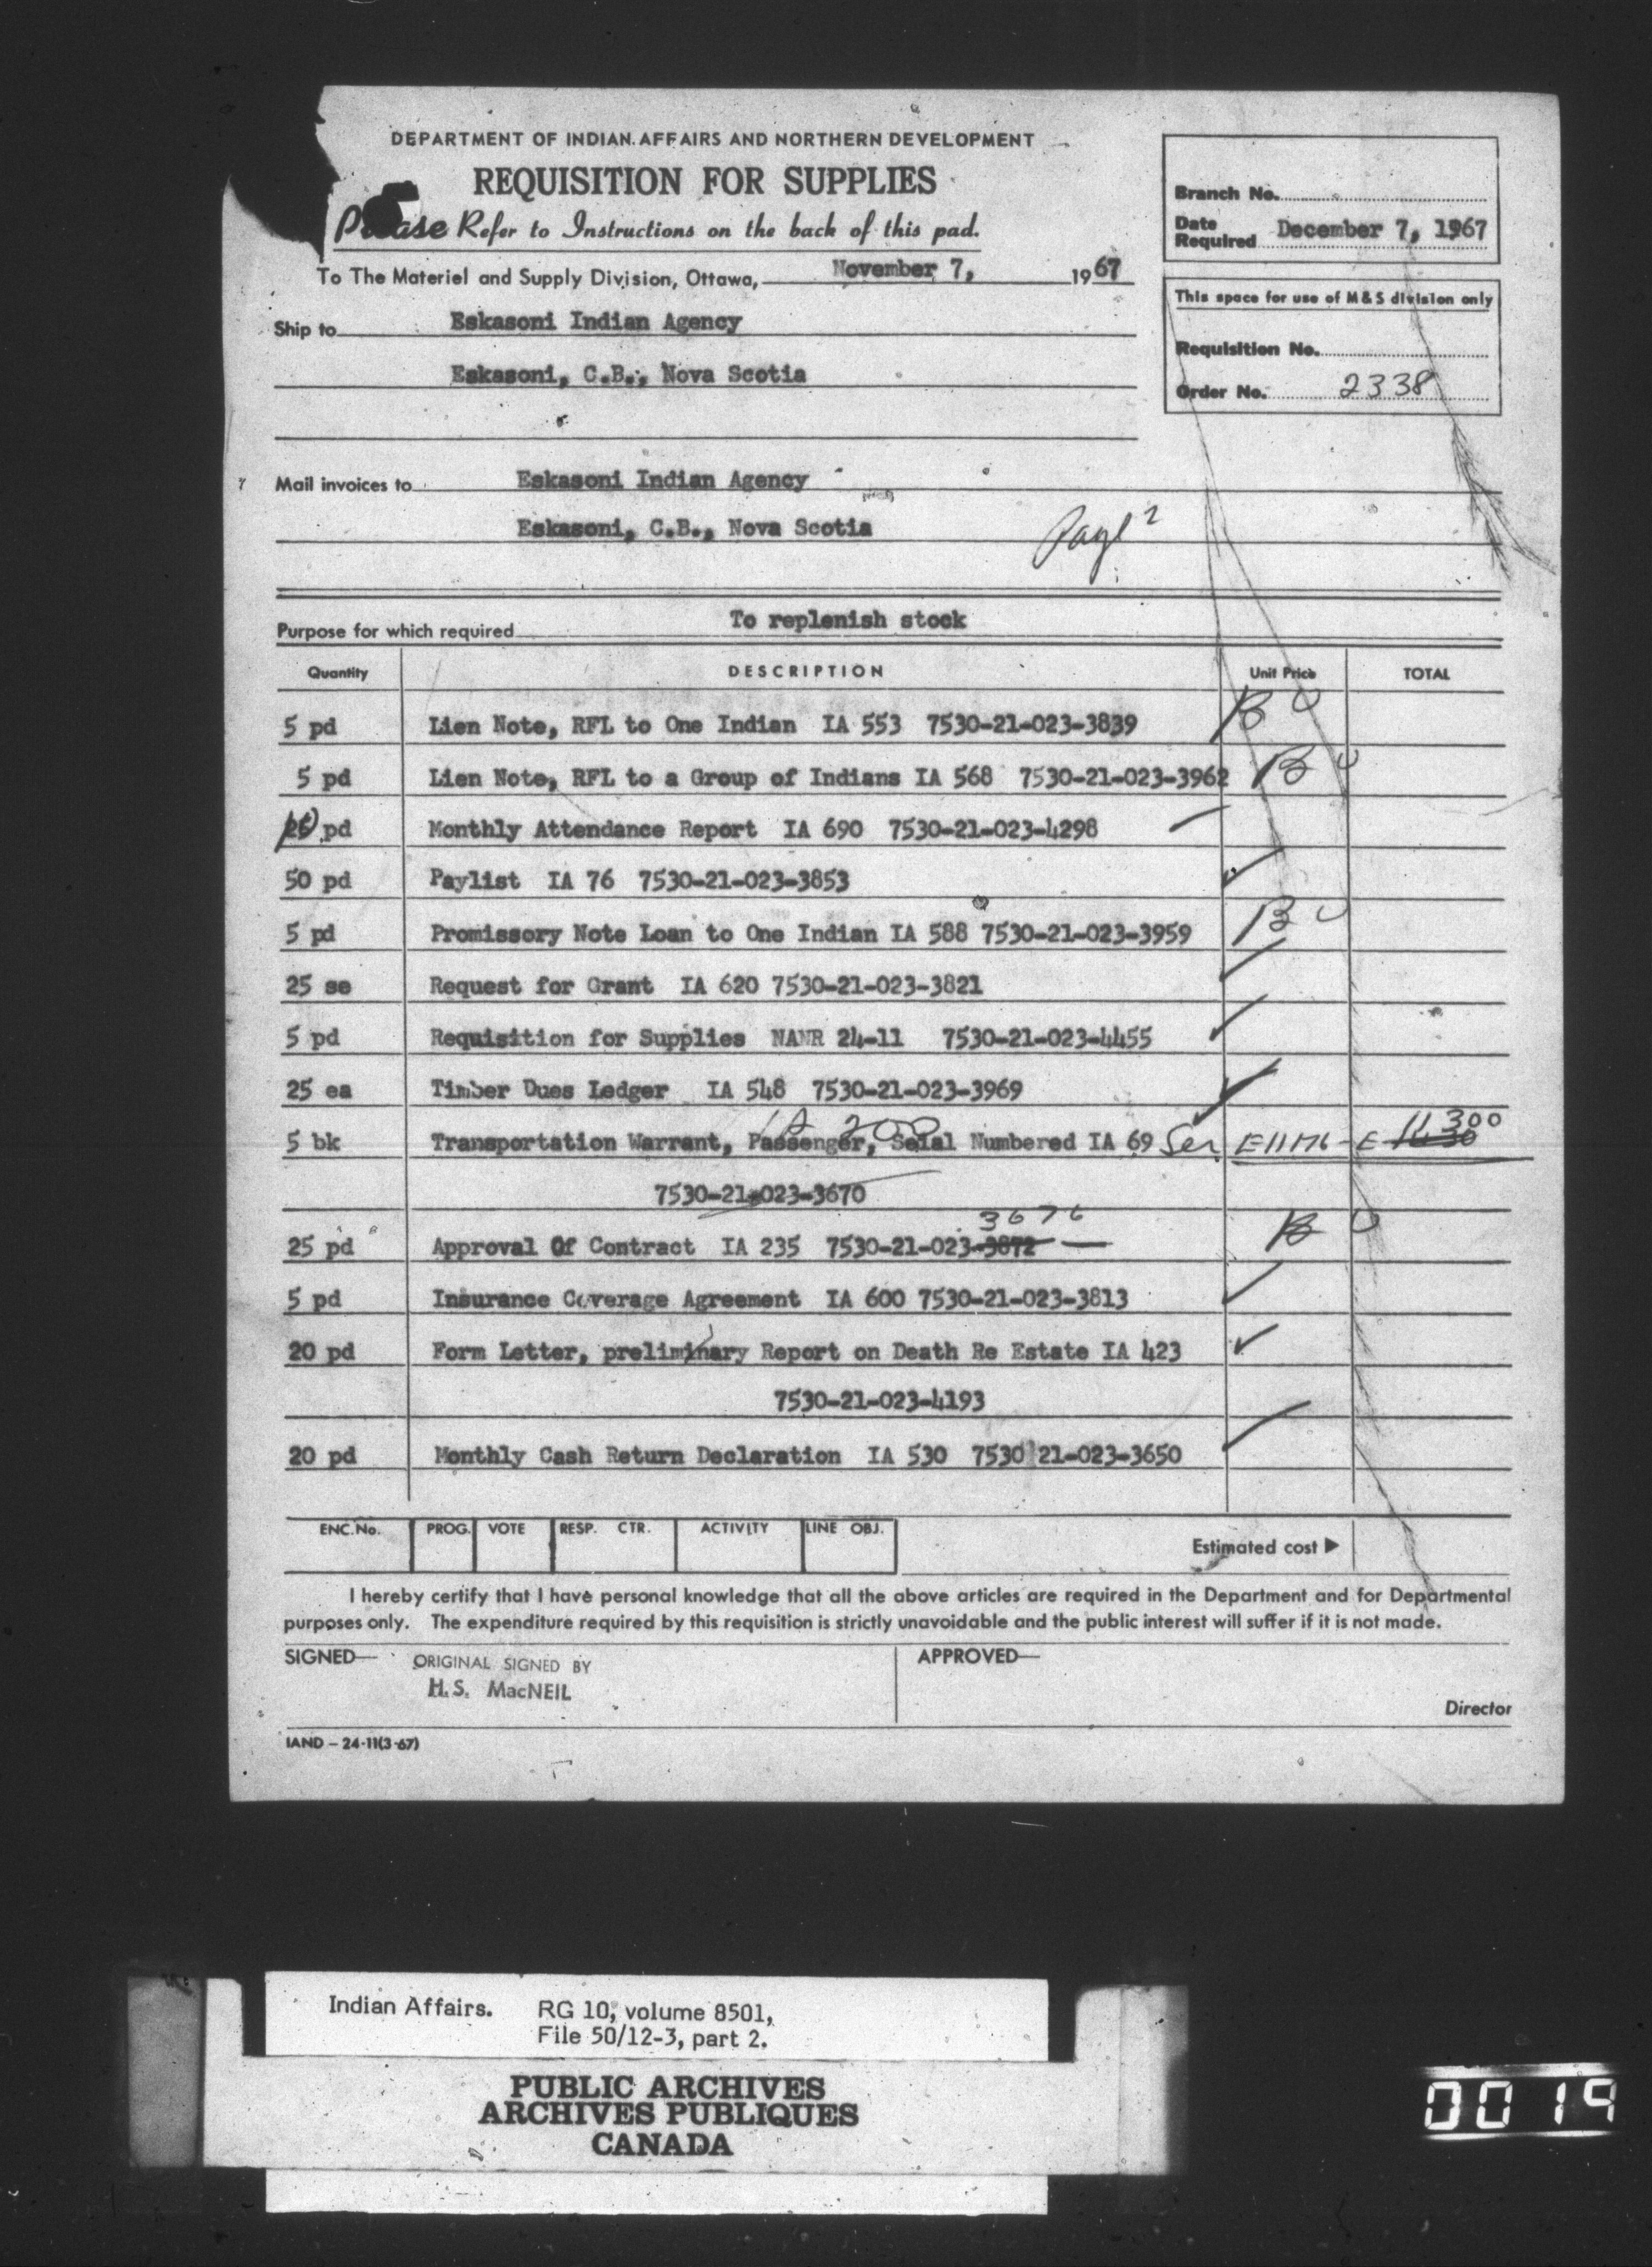 DEPARTMENT OF INDIAN AFFAIRS AND NORTHERN DEVELOPMENT
REQUISITION FOR SUPPLIES
Please Refer to Instructions on the back of this pad.
Branch No.
Date Required December 7, 1967
To The Materiel and Supply Division, Ottawa, November 7, 1967
This space for use of M & S division only
Ship to Eskasoni Indian Agency
Requisition No.
Eskasoni, C.B., Nova Scotia
Order No. 2338
Mail invoices to Eskasoni Indian Agency
Eskasoni, C.B., Nova Scotia
Page 2
Purpose for which required To replenish stock
Quantity DESCRIPTION Unit Price TOTAL
5 pd Lien Note, RFL to One Indian IA 553 7530-21-023-3839 B O
5 pd Lien Note, RFL to a Group of Indians IA 568 7530-21-023-3962 B O
pd Monthly Attendance Report IA 690 7530-21-023-4298 ✓
50 pd Paylist IA 76 7530-21-023-3853 ✓
5 pd Promissory Note Loan to One Indian IA 588 7530-21-023-3959 B O
25 se Request for Grant IA 620 7530-21-023-3821 ✓
5 pd Requisition for Supplies NANR 24-11 7530-21-023-4455 ✓
25 ea Timber Dues Ledger IA 548 7530-21-023-3969 ✓
IA 200 11300
5 bk Transportation Warrant, Passenger, Seial Numbered IA 69 Ser E11176 - E
7530-21-023-3670
3676
25 pd Approval Of Contract IA 235 7530-21-023-3872 B O
5 pd Insurance Coverage Agreement IA 600 7530-21-023-3813 ✓
20 pd Form Letter, preliminary Report on Death Re Estate IA 423 ✓
7530-21-023-4193
20 pd Monthly Cash Return Declaration IA 530 7530 21-023-3650 ✓
ENC. No. PROG. VOTE RESP. CTR. ACTIVITY LINE OBJ.
Estimated cost ▶
I hereby certify that I have personal knowledge that all the above articles are required in the Department and for Departmental
purposes only. The expenditure required by this requisition is strictly unavoidable and the public interest will suffer if it is not made.
SIGNED— ORIGINAL SIGNED BY
H.S. MacNEIL
APPROVED—
Director
IAND - 24-11(3-67)
Indian Affairs. RG 10, volume 8501,
File 50/12-3, part 2.
PUBLIC ARCHIVES
ARCHIVES PUBLIQUES
CANADA
0019